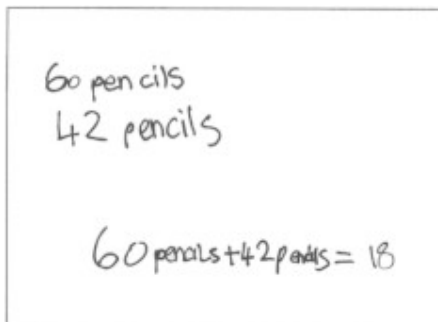 60 pencils
42 pencils
60 pencils + 42 pencils = 18